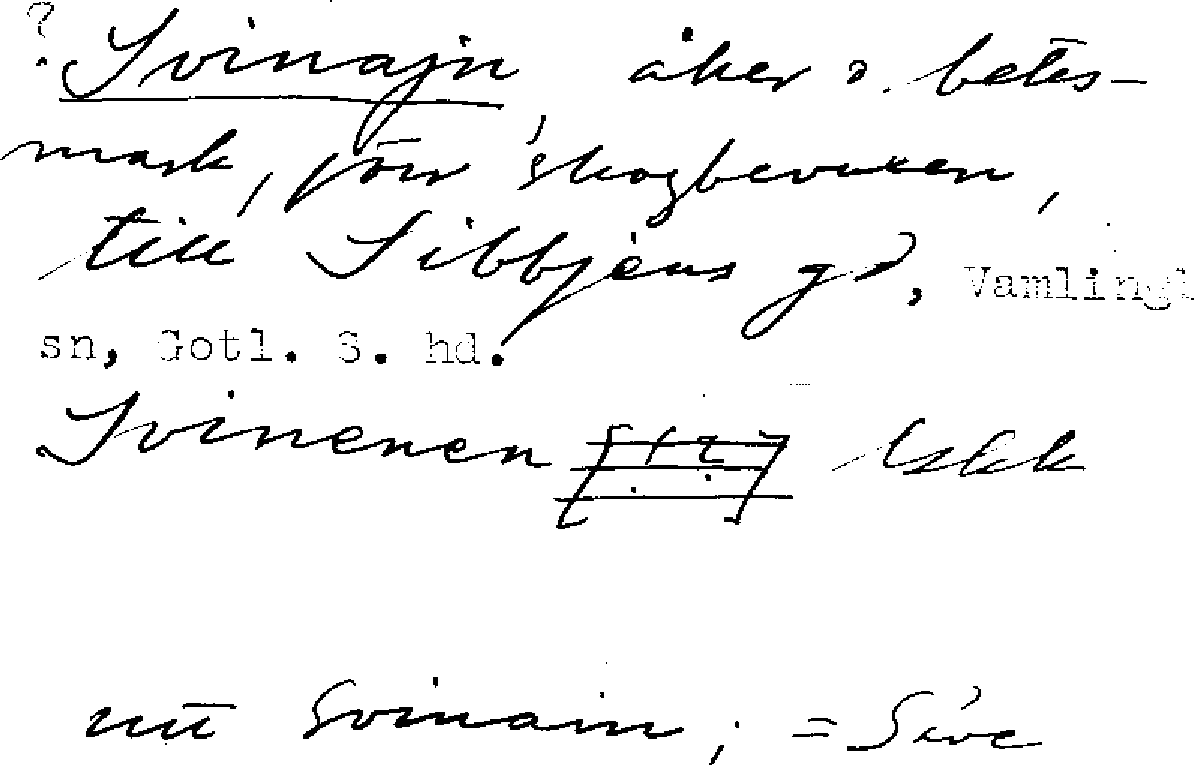 ? Svinajn, åker o. betes-
mark, förr skogbevuxen,
till Sibbjens gd, Vamlingb
sn, Gotl. S. hd.
Svinenen
nu Svinain; = Säve